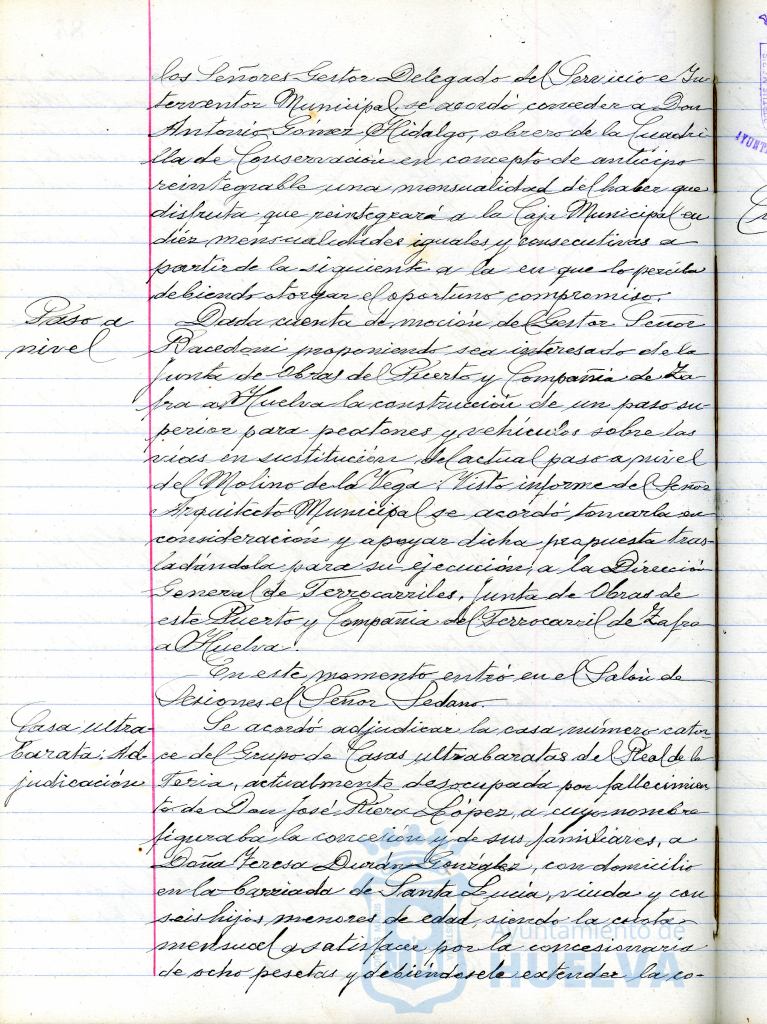 los Señores Gestor Delegado del Servicio e In-
terventor Municipal, se acordó conceder a Don
Antonio Gómez Hidalgo, obrero de la Cuadri-
lla de Conservación en concepto de anticipo
reintegrable una mensualidad del haber que
disfruta que reintegrará a la Caja Municipal en
diez mensualidades iguales y consecutivas a
partir de la siguiente a la en que lo perciba
debiendo otorgar el oportuno compromiso.
Paso a
nivel
Dada cuenta de moción del Gestor Señor
proponiendo sea interesado de la
Junta de Obras del Puerto y Compañía de Za-
fra a Huelva la construcción de un paso su-
perior para peatones y vehículos sobre las
vías en sustitución del actual paso a nivel
del Molino de la Vega. Visto informe del Señor
Arquitecto Municipal se acordó tomarla en
consideración y apoyar dicha propuesta tras-
ladándola para su ejecución, a la Dirección
General de Ferrocarriles, Junta de Obras de
este Puerto y Compañía del Ferrocarril de Zafra
a Huelva.
En este momento entró en el Salón de
Sesiones el Señor Sedano.
Casa ultra-
barata: Ad-
judicación
Se acordó adjudicar la casa número cator-
ce del Grupo de Casas ultrabaratas del Real de la
Feria, actualmente desocupada por fallecimien-
to de Don José Riero López, a cuyo nombre
figuraba la concesión y de sus familiares, a
Doña Teresa Durán González, con domicilio
en la barriada de Santa Lucía, viuda y con
seis hijos menores de edad, siendo la cuota
mensual a satisfacer por la concesionaria
de ocho pesetas y debiéndosele extender la co-
Ayuntamiento de
HUELVA